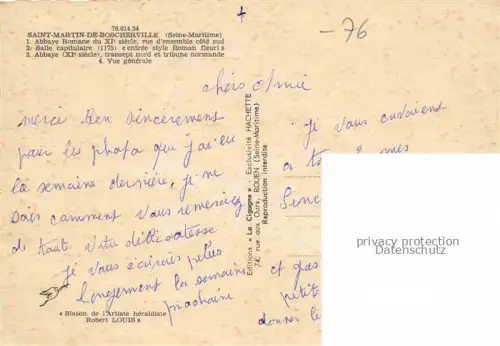 76.614.24
SAINT-MARTIN-DE-BOSCHERVILLE (Seine-Maritime)
1. Abbaye Romane du XIe siècle, vue d'ensemble côté sud
2. Salle capitulaire (1175) « entrée style Roman fleuri »
3. Abbaye (XIe siècle), transept nord et tribune normande
4. Vue générale
-76
chers Amie
merci bien sincèrement
pour les phota que j'ai eu
la semaine dernière, je ne
sais comment vous remercier
de toute votre délicatesse
je vous écrirais plus
longuement la semaine
prochaine
« Blason de l'Artiste héraldiste
Robert LOUIS »
Editions « Le Cigogne » - Exclusivité HACHETTE
74, rue aux Ours, ROUEN (Seine-Maritime)
Reproduction interdite
je vous envoient
a mes
Sinc
et
petit
donner le
privacy protection
Datenschutz